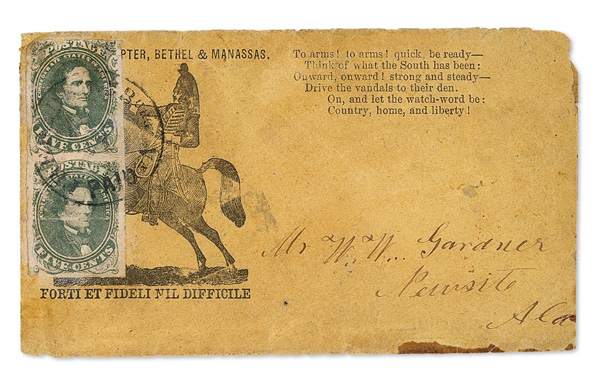 PTER, BETHEL & MANASSAS.
To arms! to arms! quick, be ready—
Think of what the South has been:
Onward, onward! strong and steady—
Drive the vandals to their den.
On, and let the watch-word be:
Country, home, and liberty!
POSTAGE
FIVE CENTS
POSTAGE
FIVE CENTS
PAID
FORTI ET FIDELI NIL DIFFICILE
Mr W. W. Gardner
Newsite
Ala